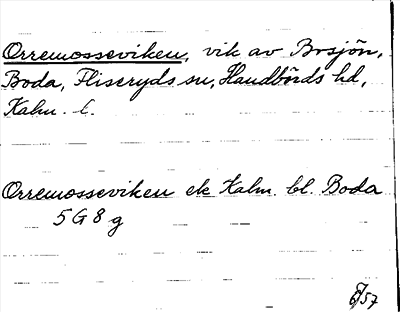 Orremosseviken, vik av Brsjön,
Boda, Fliseryds sn, Handbörds hd,
Kalm. l.
Orremosseviken ek Kalm. bl. Boda
5 G 8 g
57